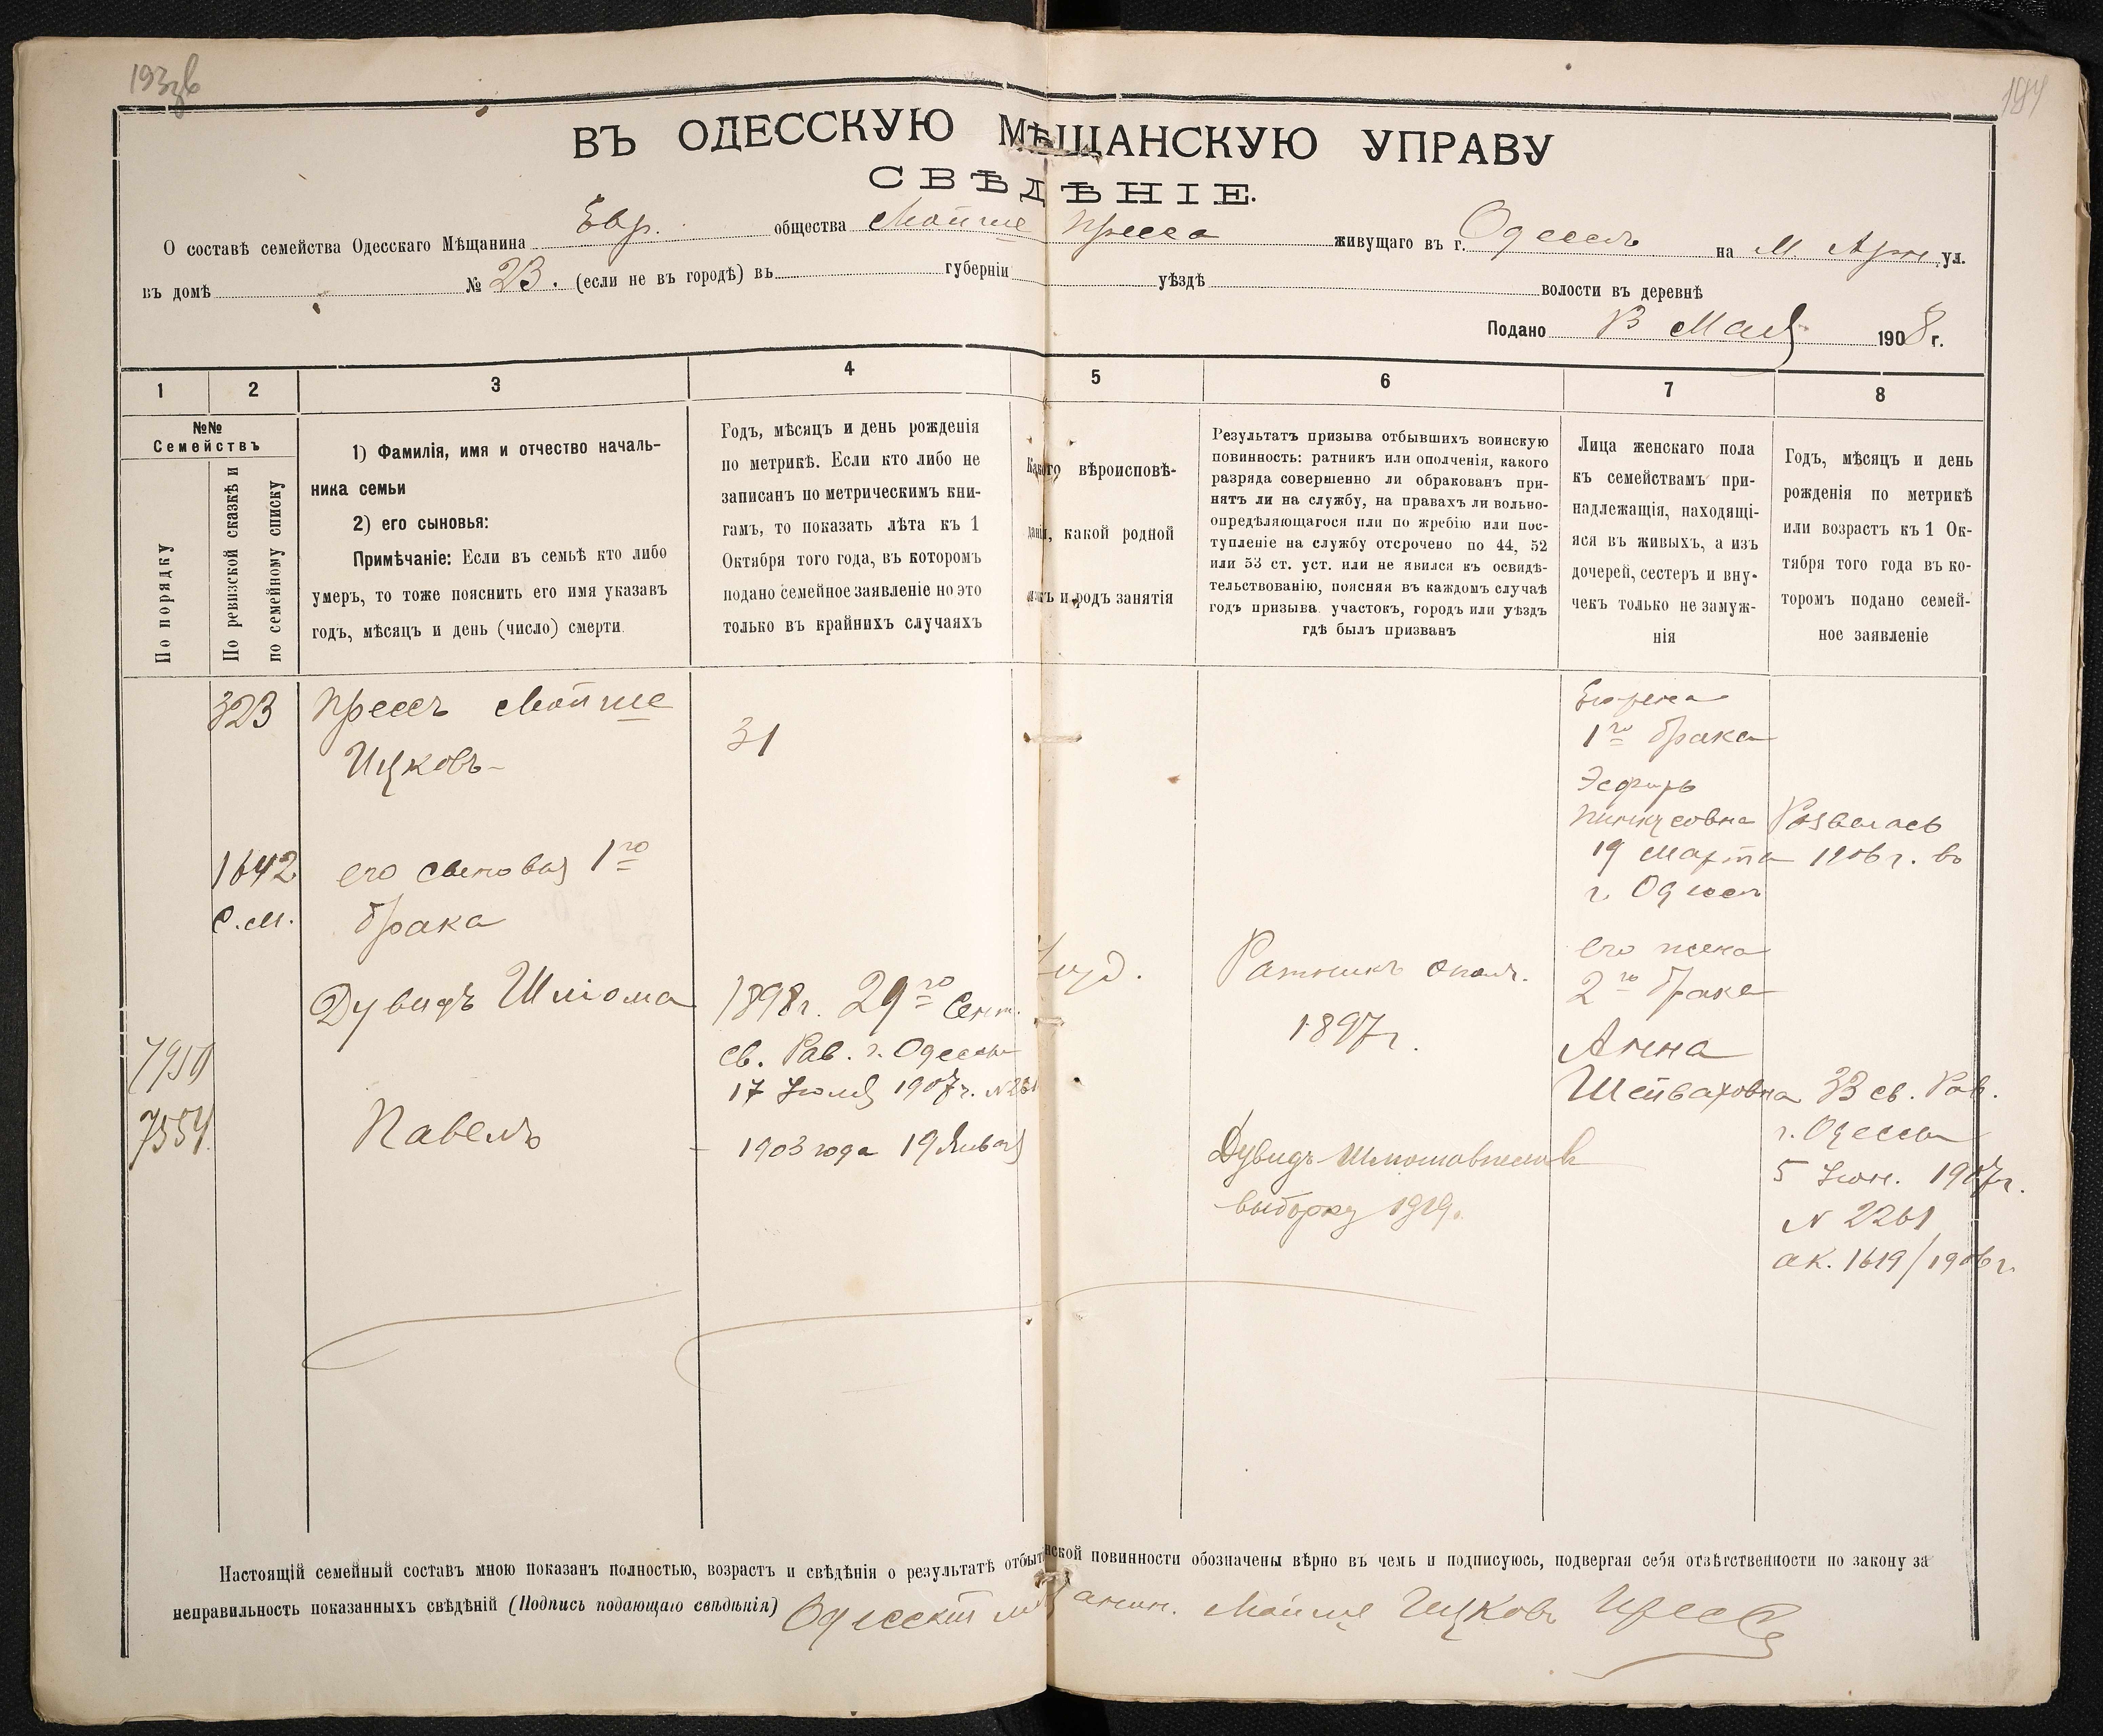 193зв
194
ВЪ ОДЕССКУЮ МѢЩАНСКУЮ УПРАВУ
СВѢДѢНІЕ.
О составѣ семейства Одесскаго Мѣщанина Евр. общества Мойше Пресса живущаго въ г. Одессѣ на М. Арн. ул.
въ домѣ № 23. (если не въ городѣ) въ губерніи уѣздѣ волости въ деревнѣ
Подано 13 Мая 1908 г.
1 2 3 4 5 6 7 8
№№
Семействъ
По порядку
По ревизской сказкѣ и
по семейному списку
1) Фамилія, имя и отчество началь-
ника семьи
2) его сыновья:
Примѣчаніе: Если въ семьѣ кто либо
умеръ, то тоже пояснить его имя указавъ
годъ, мѣсяцъ и день (число) смерти.
Годъ, мѣсяцъ и день рожденія
по метрикѣ. Если кто либо не
записанъ по метрическимъ кни-
гамъ, то показать лѣта къ 1
Октября того года, въ которомъ
подано семейное заявленіе но это
только въ крайнихъ случаяхъ
Какого вѣроисповѣ-
данія, какой родной
языкъ и родъ занятія
Результатъ призыва отбывшихъ воинскую
повинность: ратникъ или ополченія, какого
разряда совершенно ли обракованъ при-
нятъ ли на службу, на правахъ ли вольно-
опредѣляющагося или по жребію или пос-
тупленіе на службу отсрочено по 44, 52
или 53 ст. уст. или не явился къ освидѣ-
тельствованію, поясняя въ каждомъ случаѣ
годъ призыва участокъ, городъ или уѣздъ
гдѣ былъ призванъ
Лица женскаго пола
къ семействамъ при-
надлежащія, находящі-
яся въ живыхъ, а изъ
дочерей, сестеръ и вну-
чекъ только не замуж-
нія
Годъ, мѣсяцъ и день
рожденія по метрикѣ
или возрастъ къ 1 Ок-
тября того года въ ко-
торомъ подано семей-
ное заявленіе
323
Прессъ Мойше
Ицковъ
31
1642
с.м.
его сыновья 1го
брака
Дувидъ Шліома
1898г. 29го Сент.
св. Рав. г. Одессы
17 Іюля 1907г.
7554
Павелъ
1903 года 19 Января
Іуд.
Ратникъ ополч.
1897г.
Дувидъ Шлиома
выборку 1919.
1го брака
Эсфирь
Пинкусовна Развелась
19 Марта 1906г. въ
г. Одессѣ
его жена
2го брака
Анна
Шейваховна 33 св. Рав.
г. Одессы
5 Іюн. 1907г.
N 2261
ак. 1619/1906г.
Настоящій семейный составъ мною показанъ полностью, возрастъ и свѣдѣнія о результатѣ отбыт нской повинности обозначены вѣрно въ чемъ и подписуюсь, подвергая себя отвѣтственности по закону за
неправильность показанныхъ свѣдѣній (Подпись подающаго свѣдѣнія) Одесскій мѣщанин. Мойше Ицковъ Прессъ